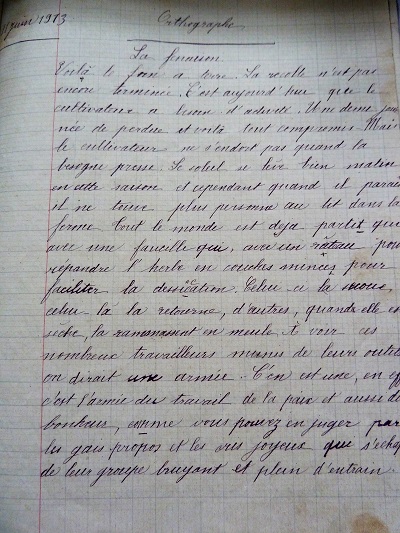 juin 1913
Orthographe
La fenaison
Voilà le foin a terre. La recolte n'est pas
encore terminée. C'est aujourd'hui que le
cultivateur a besoin d'activité. Une demi jour
née de perdue et voilà tout compromis. Mais
le cultivateur ne s'endort pas quand la
besogne presse. Le soleil se lève bien matin
en cette saison et cependant quand il parait
il ne trouve plus personne au lit dans la
ferme. Tout le monde est deja partit qui
avec une faucelle qui, avec un rateau pour
répandre l'herbe en couches minces pour
faciliter la dessication. Celui-ci la
celui-là la retourne, d'autres, quand elle est
sèche, la ramassent en meule. A voir ces
nombreux travailleurs munis de leurs outils
on dirait une armée. C'en est une, en eff
c'est l'armée des travail de la paix et aussi de
bonheur, comme vous pouvez en juger par
les gais propos et les ris joyeux que s'echap
de leur groupe bruyant et plein d'entrain.